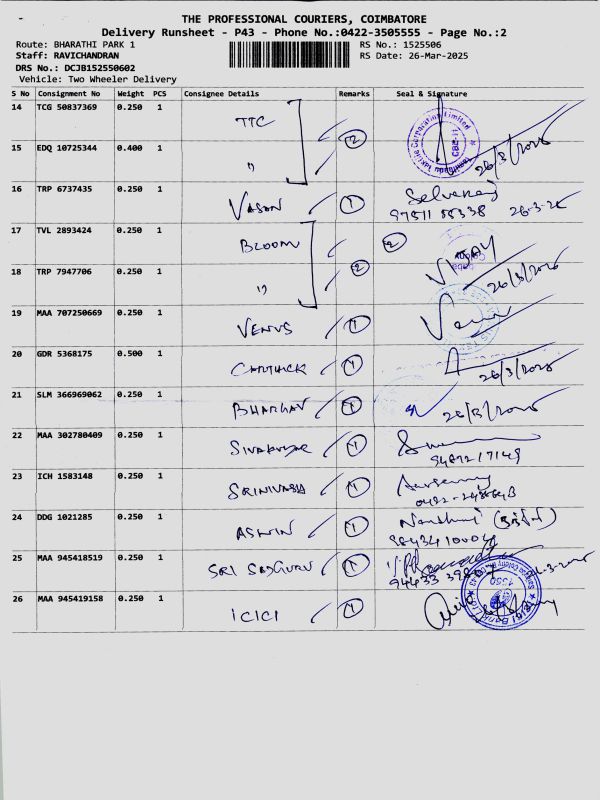 THE PROFESSIONAL COURIERS, COIMBATORE
Delivery Runsheet - P43 - Phone No.:0422-3505555 - Page No.:2
Route: BHARATHI PARK 1 RS No.: 1525506
Staff: RAVICHANDRAN RS Date: 26-Mar-2025
DRS No.: DCJB152550602
Vehicle: Two Wheeler Delivery
S No Consignment No Weight PCS Consignee Details Remarks Seal & Signature
14 TCG 50837369 0.250 1 TTC 2
15 EDQ 10725344 0.400 1 " 26/3/2025
16 TRP 6737435 0.250 1 VASAN 1 Selvaraj
26-3-25
17 TVL 2893424 0.250 1 BLOOM 2 VIJAY
18 TRP 7947706 0.250 1 " 2 26/3/2025
19 MAA 707250669 0.250 1 VENUS 1
20 GDR 5368175 0.500 1 1 26/3/2025
21 SLM 366969062 0.250 1 BHARGAV 1 26/3/2025
22 MAA 302780409 0.250 1 SIVAKUMAR 1
9489217149
23 ICH 1583148 0.250 1 SRINIVASA 1
24 DDG 1021285 0.250 1 ASWIN 1
9843410004
25 MAA 945418519 0.250 1 SRI SADGURU 1
94433
26 MAA 945419158 0.250 1 ICICI 1